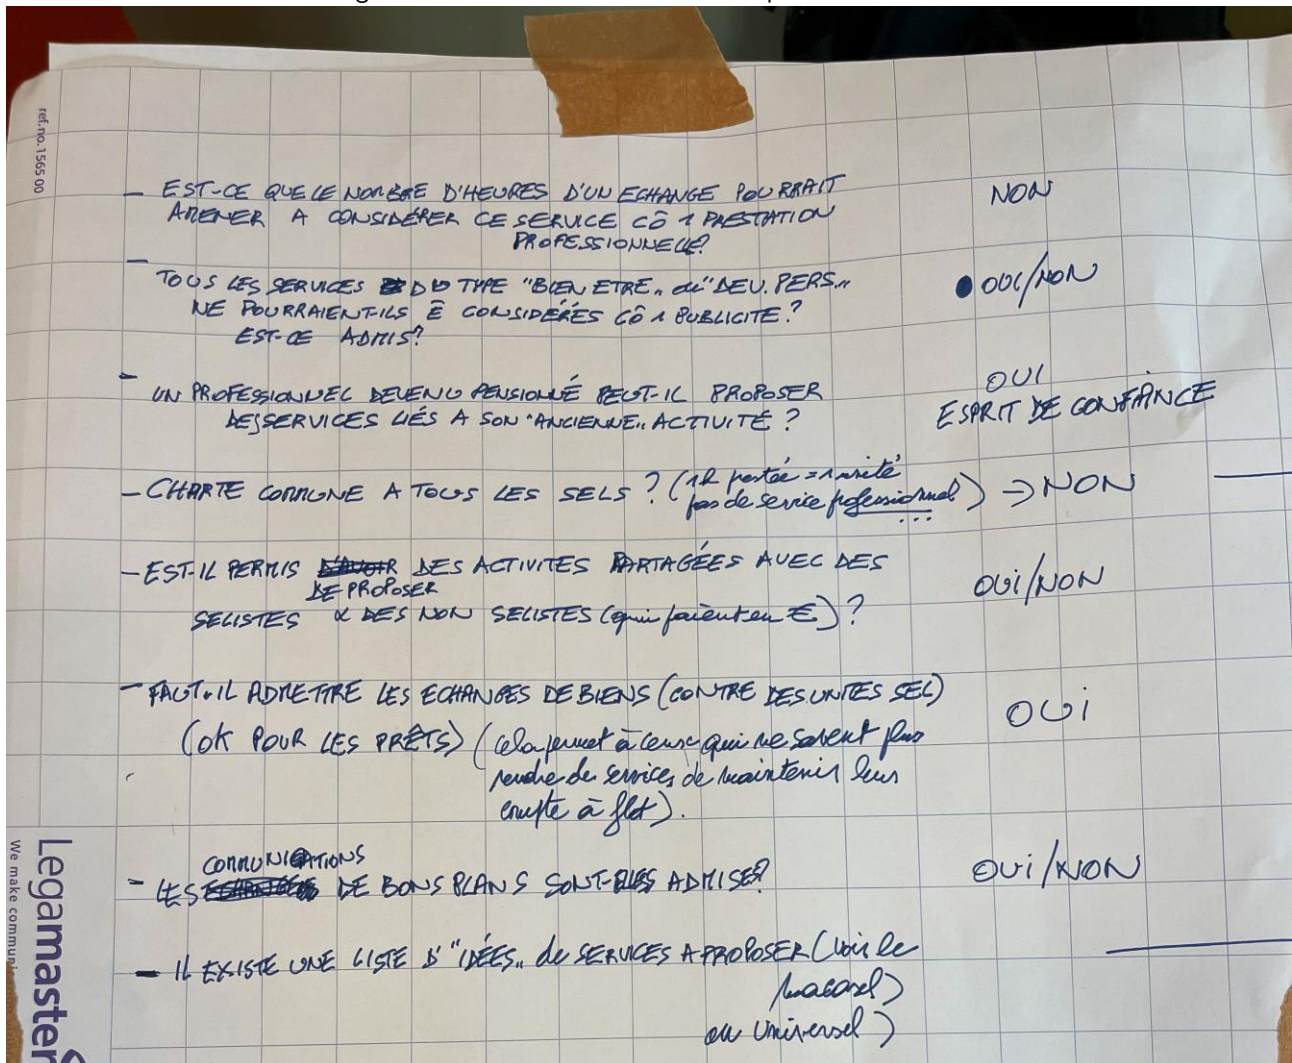 ref.no. 1565 00
- EST-CE QUE LE NOMBRE D'HEURES D'UN ECHANGE POURRAIT NON
AMENER A CONSIDÉRER CE SERVICE CÔ 1 PRESTATION
PROFESSIONNELLE?
- TOUS LES SERVICES DU TYPE "BIEN ETRE" ou "DEV. PERS." OUI/NON
NE POURRAIENT-ILS Ê CONSIDÉRÉS CÔ 1 PUBLICITE?
EST-CE ADMIS?
- UN PROFESSIONNEL DEVENU PENSIONNÉ PEUT-IL PROPOSER OUI
DES SERVICES LIÉS A SON "ANCIENNE" ACTIVITÉ? ESPRIT DE CONFIANCE
- CHARTE COMMUNE A TOUS LES SELS? (1h prestée = 1 unité
pas de service professionnel) → NON
...
- EST-IL PERMIS D'AVOIR DES ACTIVITES PARTAGÉES AVEC DES OUI/NON
DE PROPOSER
SELISTES & DES NON SELISTES (qui paient en €)?
- FAUT-IL ADMETTRE LES ECHANGES DE BIENS (CONTRE DES UNITES SEL) OUI
(OK POUR LES PRÊTS) (cela permet à ceux qui ne savent plus
rendre de services de maintenir leur
compte à flot).
COMMUNICATIONS
- LES DE BONS PLANS SONT-ELLES ADMISES? OUI/NON
- IL EXISTE UNE LISTE D'"IDÉES" de SERVICES A PROPOSER (voir le
ou Universel)
Legamaster
We make